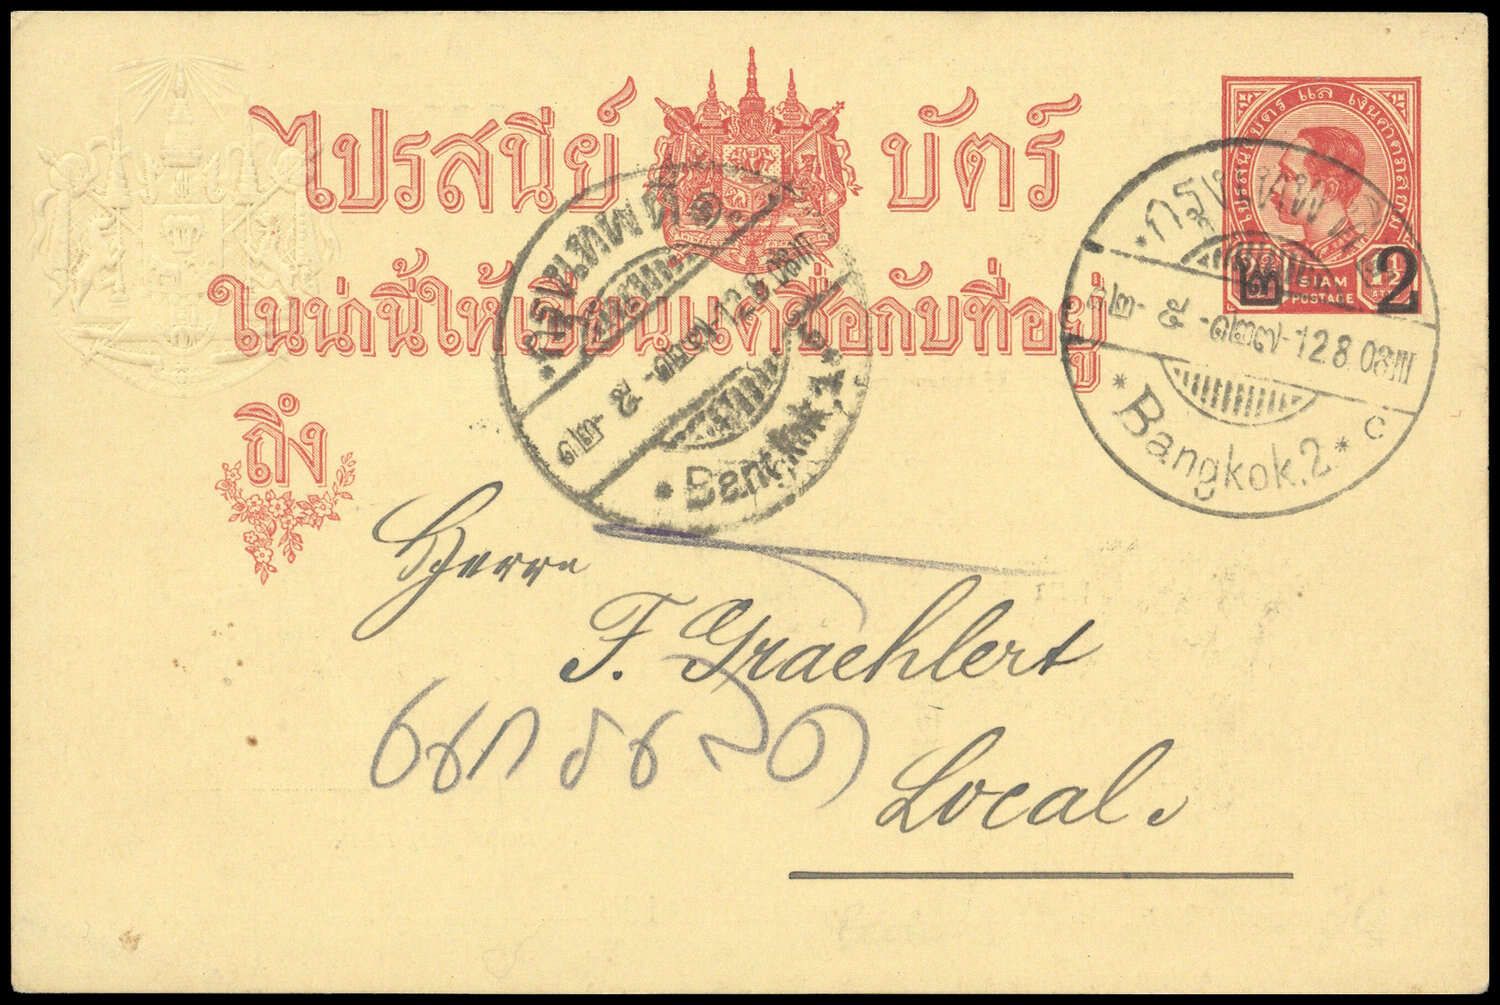 ไปรสนีย์ บัตร์
ในน่านี้ให้เขียนแต่ชื่อกับที่อยู่
ถึง
SIAM
POSTAGE
๒ 2
กรุงเทพฯ ๒
๑๒ - ๕ - ๑๒๗ - 12.8.08 III
* Bangkok.2 * c
กรุงเทพฯ ๒
๑๒ - ๕ - ๑๒๗ - 12.8.08 III
* Bangkok 2 *
Herrn
F. Graehlert
Local.